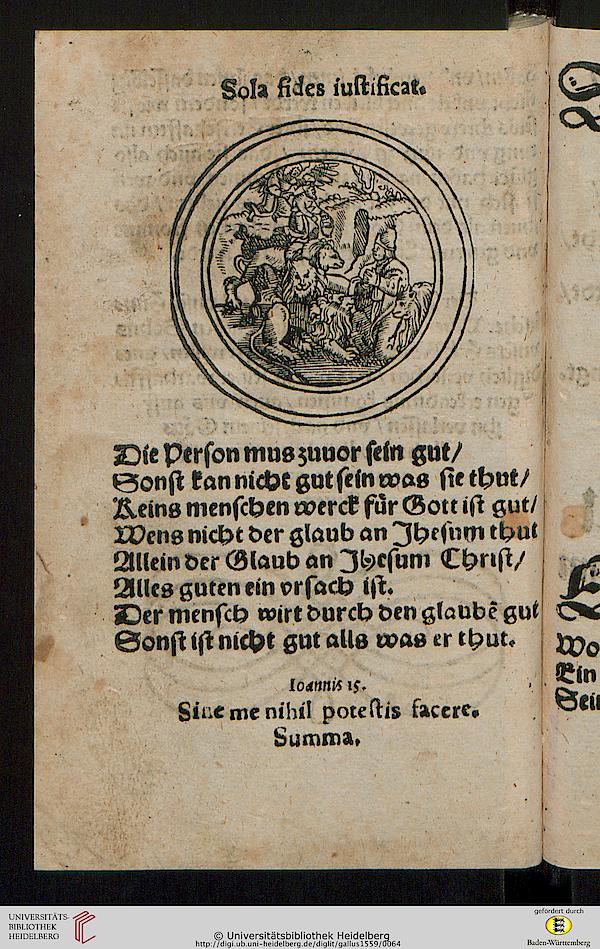 Sola fides iustificat.
Die Person mus zuuor sein gut/
Sonst kan nicht gut sein was sie thut/
Keins menschen werck für Gott ist gut/
Wens nicht der glaub an Jhesum thut
Allein der Glaub an Jhesum Christ/
Alles guten ein vrsach ist.
Der mensch wirt durch den glaubē gut
Sonst ist nicht gut alls was er thut.
Ioannis 15.
Sine me nihil potestis facere.
Summa.
Wo
Ein
Sei
UNIVERSITÄTS-
BIBLIOTHEK
HEIDELBERG
© Universitätsbibliothek Heidelberg
http://digi.ub.uni-heidelberg.de/diglit/gallus1559/0064
gefördert durch
Baden-Württemberg